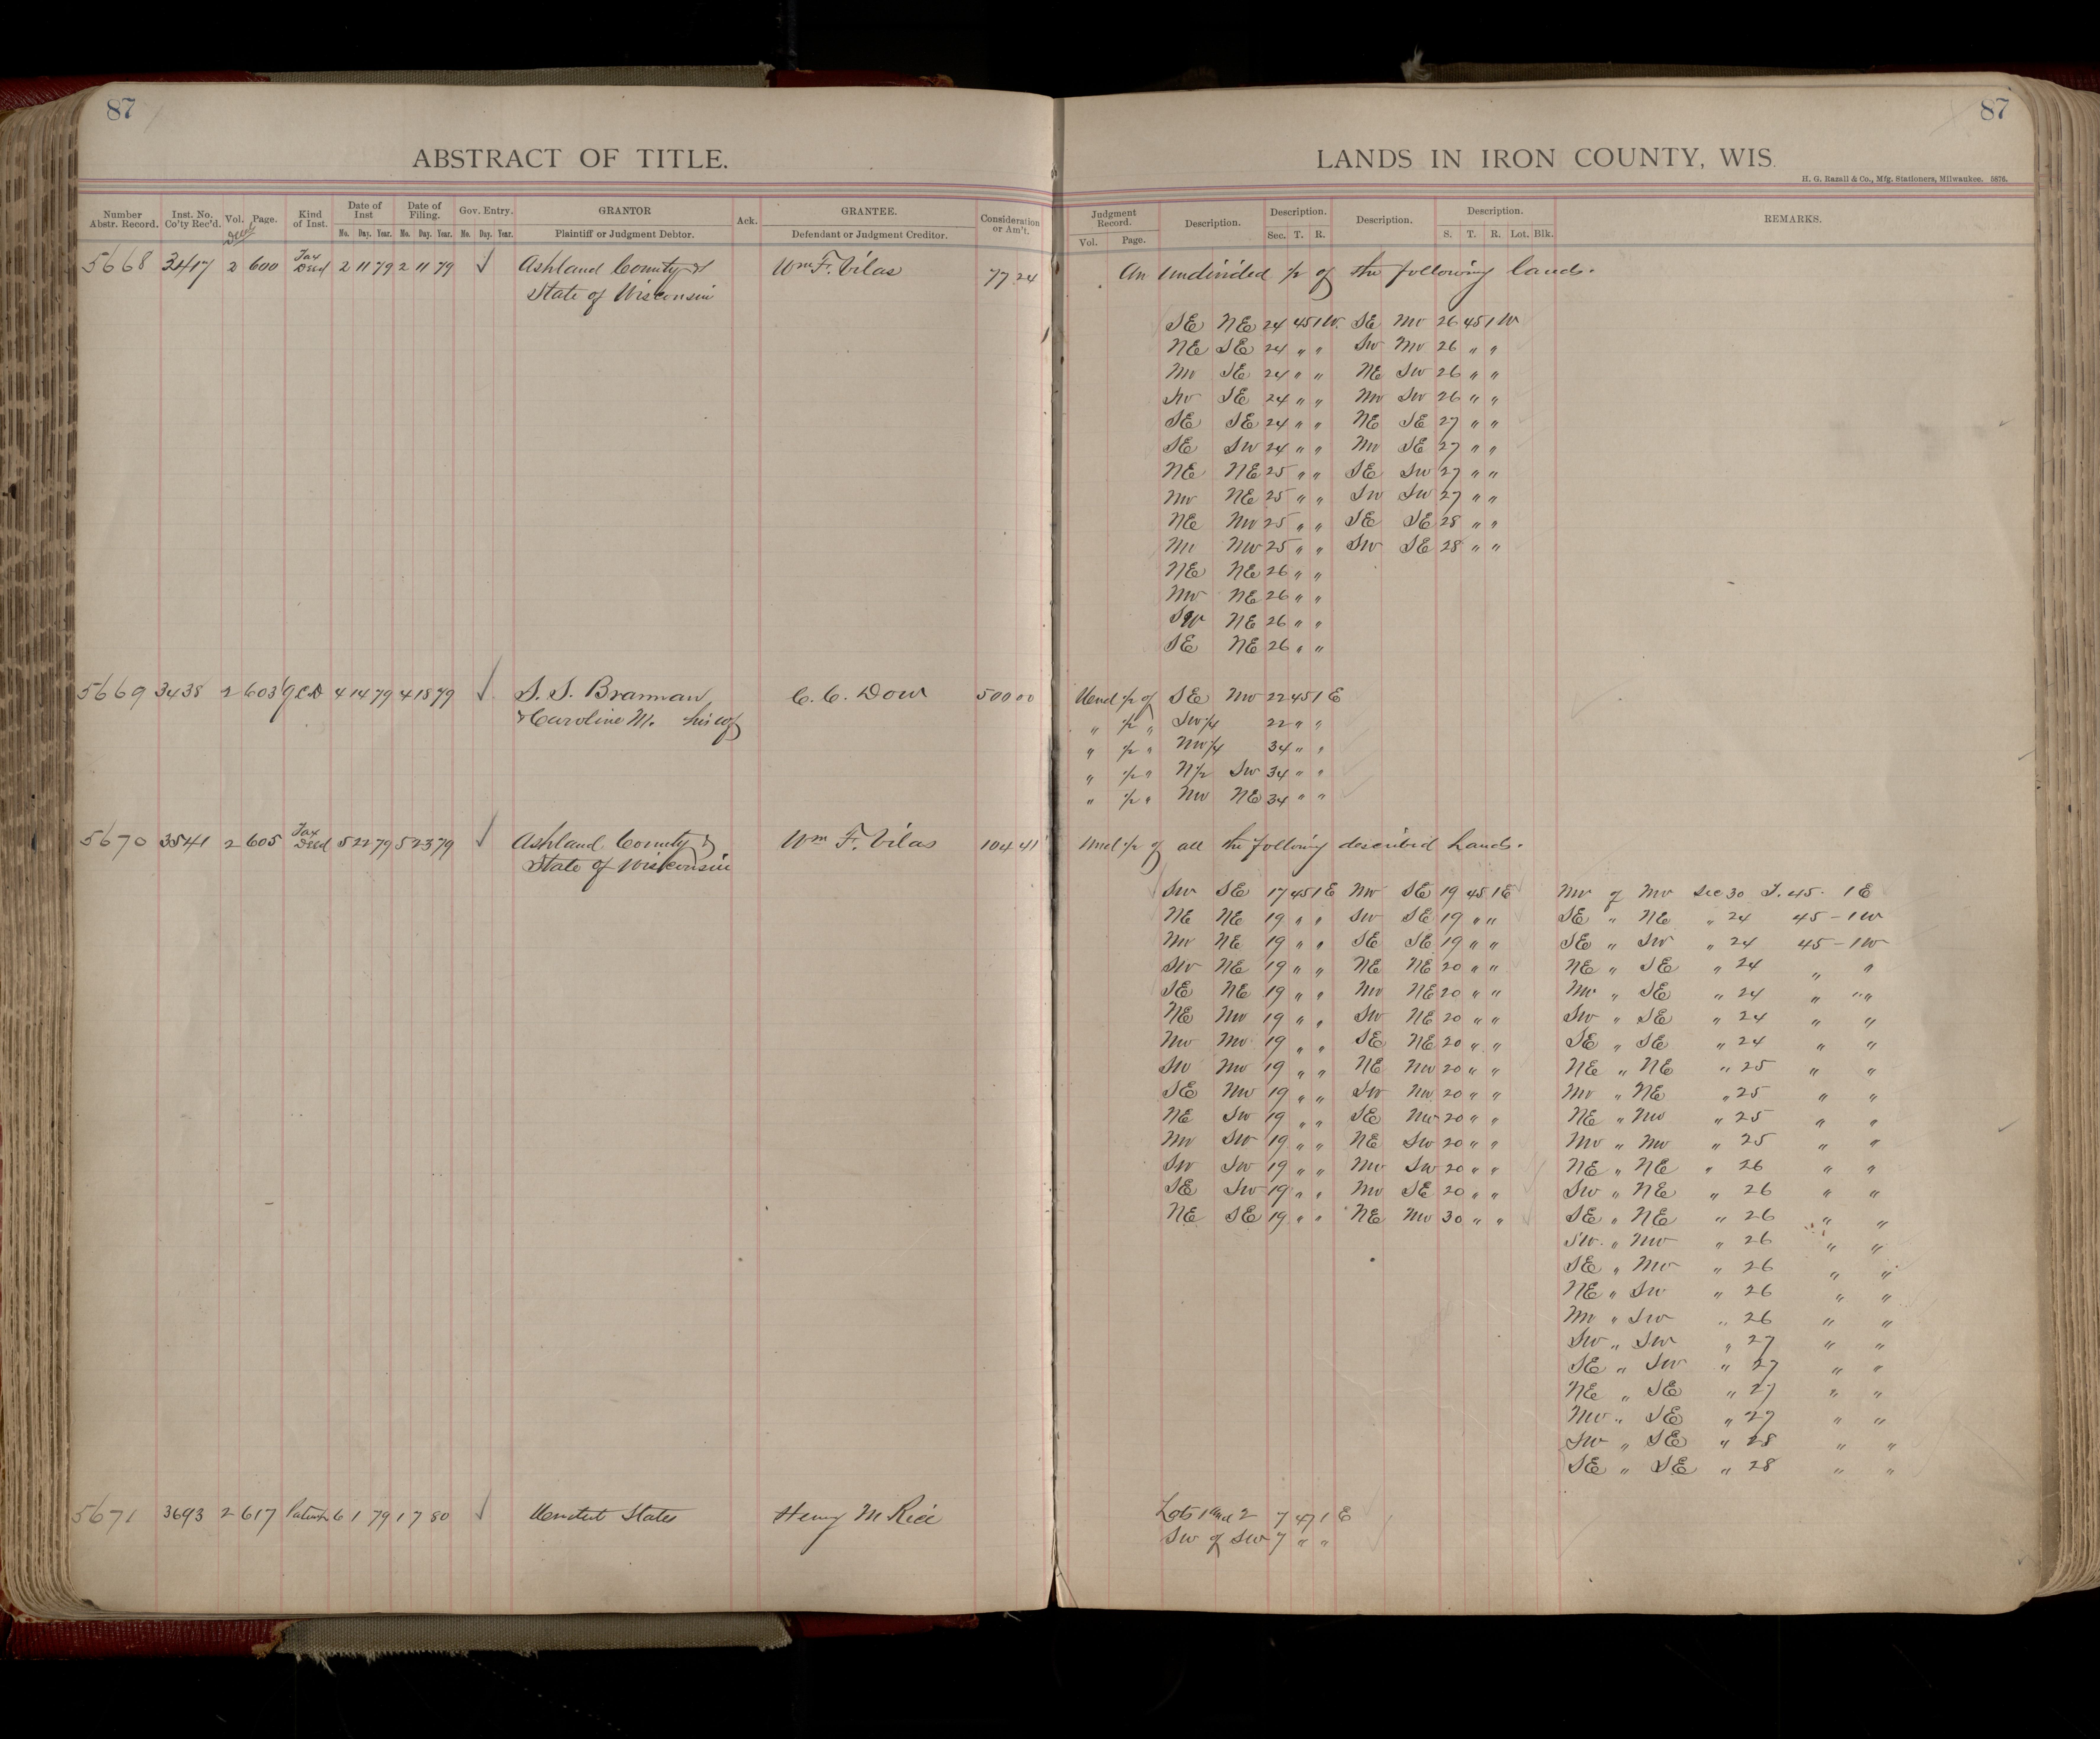 87
87
ABSTRACT OF TITLE.
LANDS IN IRON COUNTY, WIS.
H. G. Razall & Co., Mfg. Stationers, Milwaukee. 5876.
Number Abstr. Record. Inst. No. Co'ty Rec'd. Vol. Page. Kind of Inst. Date of Inst Mo. Day. Year. Date of Filing. Mo. Day. Year. Gov. Entry. Mo. Day. Year. GRANTOR Plaintiff or Judgment Debtor. Ack. GRANTEE. Defendant or Judgment Creditor. Consideration or Am't.
Judgment Record. Vol. Page. Description. Description. Sec. T. R. Description. Description. S. T. R. Lot. Blk. REMARKS.
Deed
5668 3417 2 600 Tax Deed 2 11 79 2 11 79 ✓ Ashland County & Wm F. Vilas 77 24 An Undivided 1/2 of the following lands.
State of Wisconsin
SE NE 24 45 1W. SE NW 26 45 1W
NE SE 24 " " SW NW 26 " "
NW SE 24 " " NE SW 26 " "
SW SE 24 " " NW SW 26 " "
SE SE 24 " " NE SE 27 " "
SE SW 24 " " NW SE 27 " "
NE NE 25 " " SE SW 27 " "
NW NE 25 " " SW SW 27 " "
NE NW 25 " " SE SE 28 " "
NW NW 25 " " SW SE 28 " "
NE NE 26 " "
NW NE 26 " "
SW NE 26 " "
SE NE 26 " "
5669 3438 2 603 QCD 4 14 79 4 18 79 ✓ S. S. Brannan C. C. Dow 500 00 Und 1/2 of SE NW 22 45 1 E
& Caroline M. his wf " 1/2 " SW 1/4 22 " "
" 1/2 " NW 1/4 34 " "
" 1/2 " N 1/2 SW 34 " "
" 1/2 " NW NE 34 " "
5670 3541 2 605 Tax Deed 5 22 79 5 23 79 ✓ Ashland County & Wm F. Vilas 104 41 Und 1/2 of all the following described Lands.
State of Wisconsin
SW SE 17 45 1E NW SE 19 45 1E NW of NW Sec 30 T. 45. 1 E
NE NE 19 " " SW SE 19 " " SE " NE " 24 45 - 1W
NW NE 19 " " SE SE 19 " " SE " SW " 24 45 - 1W
SW NE 19 " " NE NE 20 " " NE " SE " 24 " "
SE NE 19 " " NW NE 20 " " NW " SE " 24 " "
NE NW 19 " " SW NE 20 " " SW " SE " 24 " "
NW NW 19 " " SE NE 20 " " SE " SE " 24 " "
SW NW 19 " " NE NW 20 " " NE " NE " 25 " "
SE NW 19 " " SW NW 20 " " NW " NE " 25 " "
NE SW 19 " " SE NW 20 " " NE " NW " 25 " "
NW SW 19 " " NE SW 20 " " NW " NW " 25 " "
SW SW 19 " " NW SW 20 " " NE " NE " 26 " "
SE SW 19 " " NW SE 20 " " SW " NE " 26 " "
NE SE 19 " " NE NW 30 " " SE " NE " 26 " "
SW " NW " 26 " "
SE " NW " 26 " "
NE " SW " 26 " "
NW " SW " 26 " "
SW " SW " 27 " "
SE " SW " 27 " "
NE " SE " 27 " "
NW " SE " 27 " "
SW " SE " 28 " "
SE " SE " 28 " "
5671 3693 2 617 Patent 6 1 79 1 7 80 ✓ United States Henry M Rice Lots 1 and 2 7 47 1 E
SW of SW 7 " "